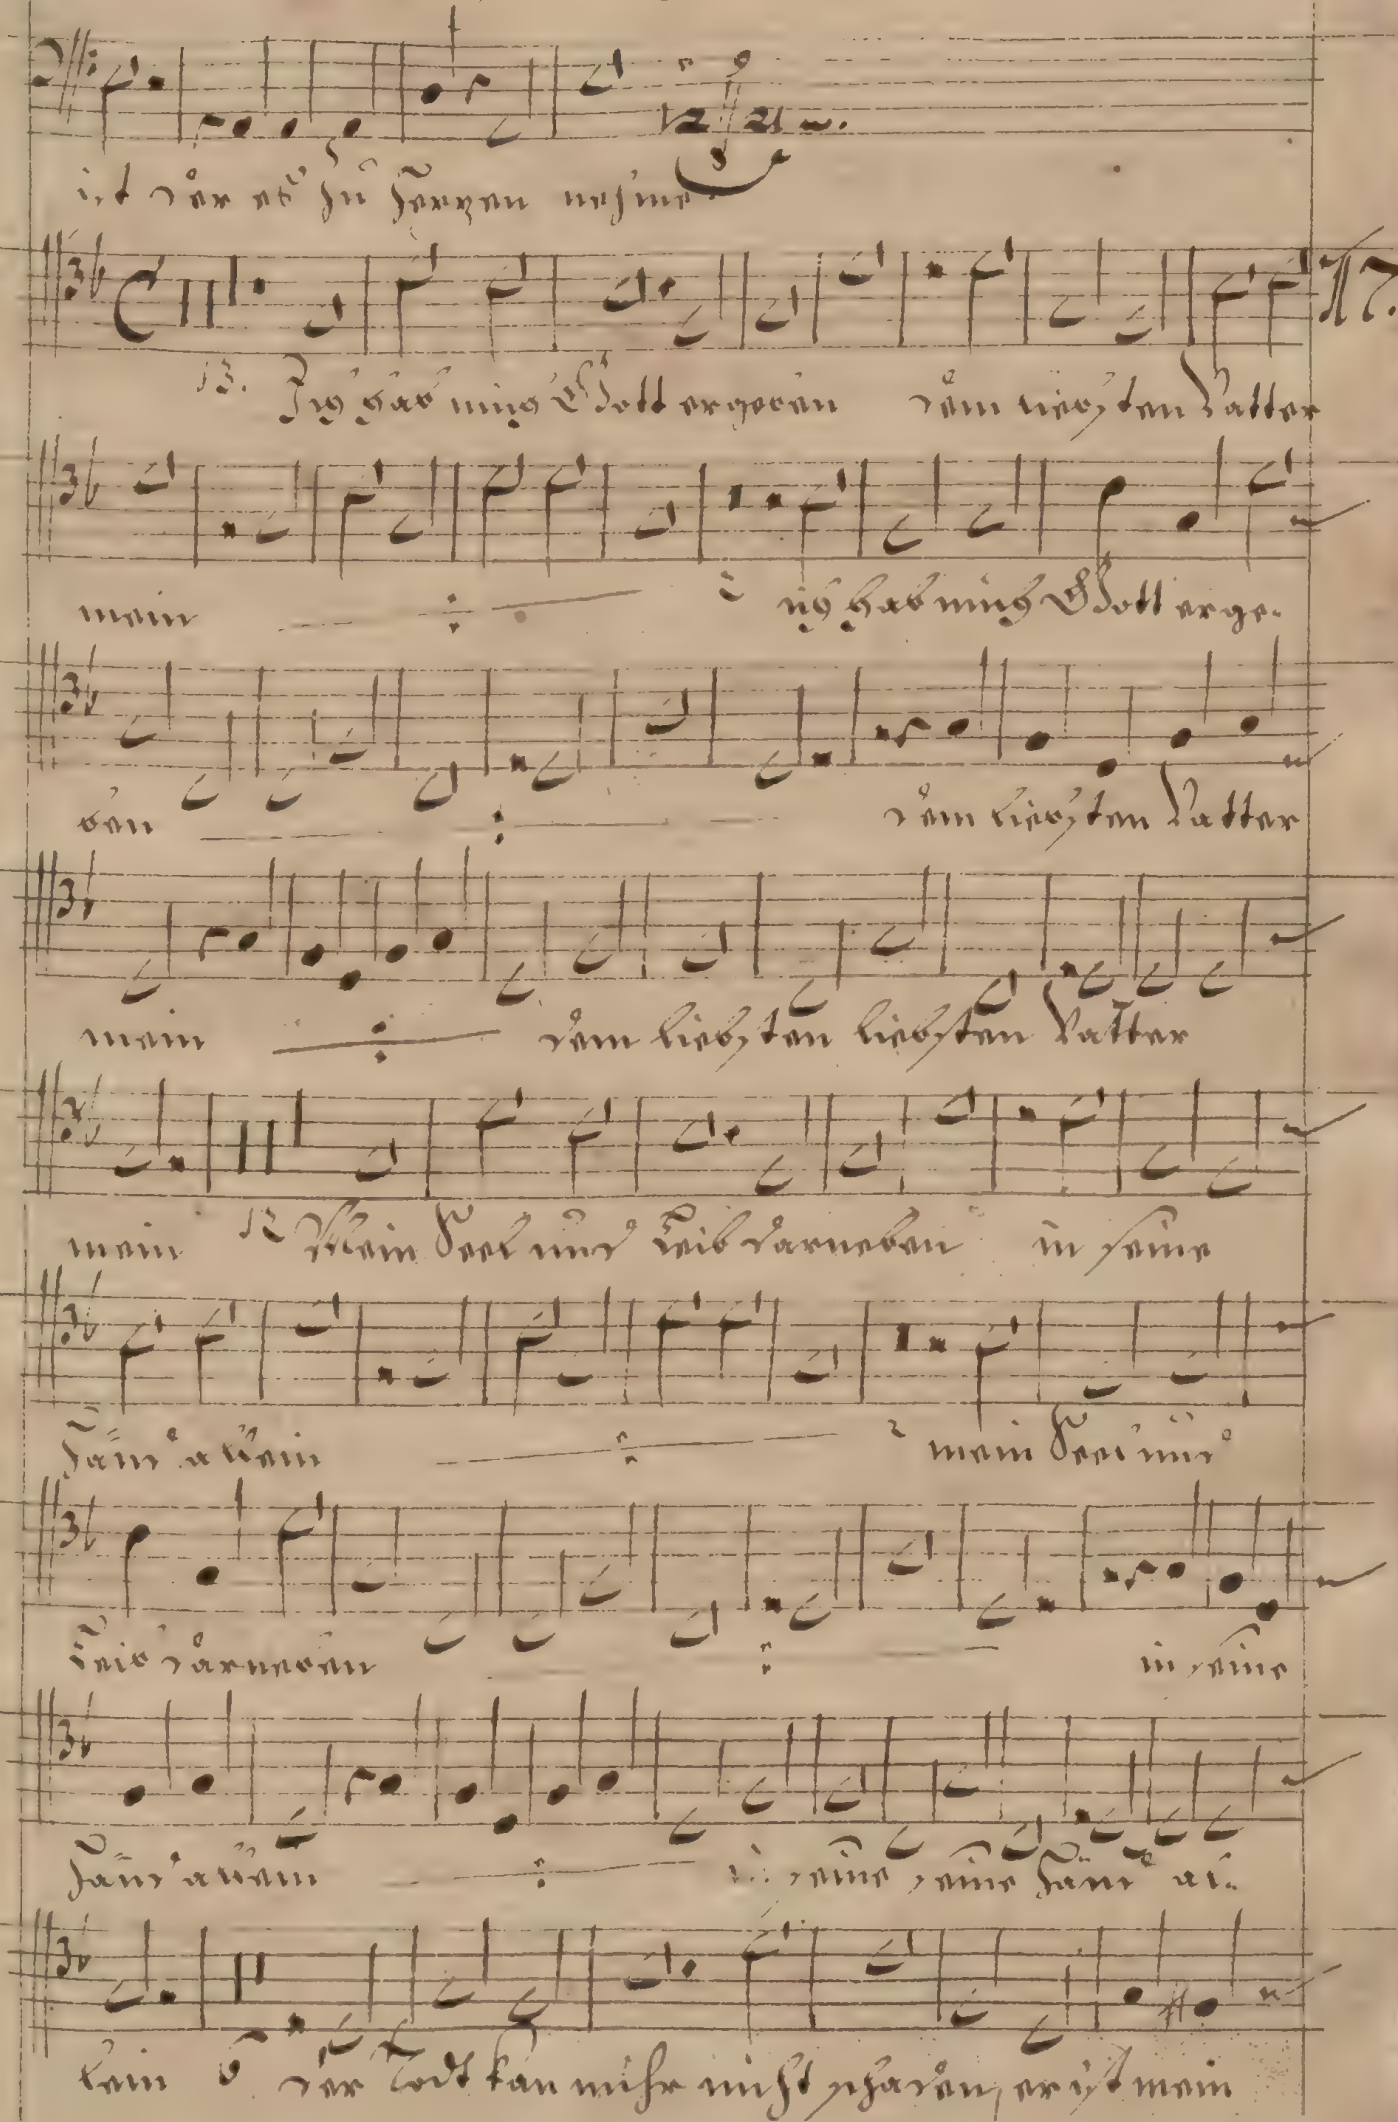 ist der es zu Herzen nehme
17.
13. Ich hab mich Gott ergeben dem liebsten Vatter
mein ich hab mich Gott erge-
ben dem liebsten Vatter
mein dem liebsten liebsten Vatter
mein 12 Mein Seel und Leib darneben in seine
Händ allein mein Seel und
Leib darneben in seine
Händ allein in seine seine Händ al-
lein 6 der Todt kan mihr nicht schaden, er ist mein